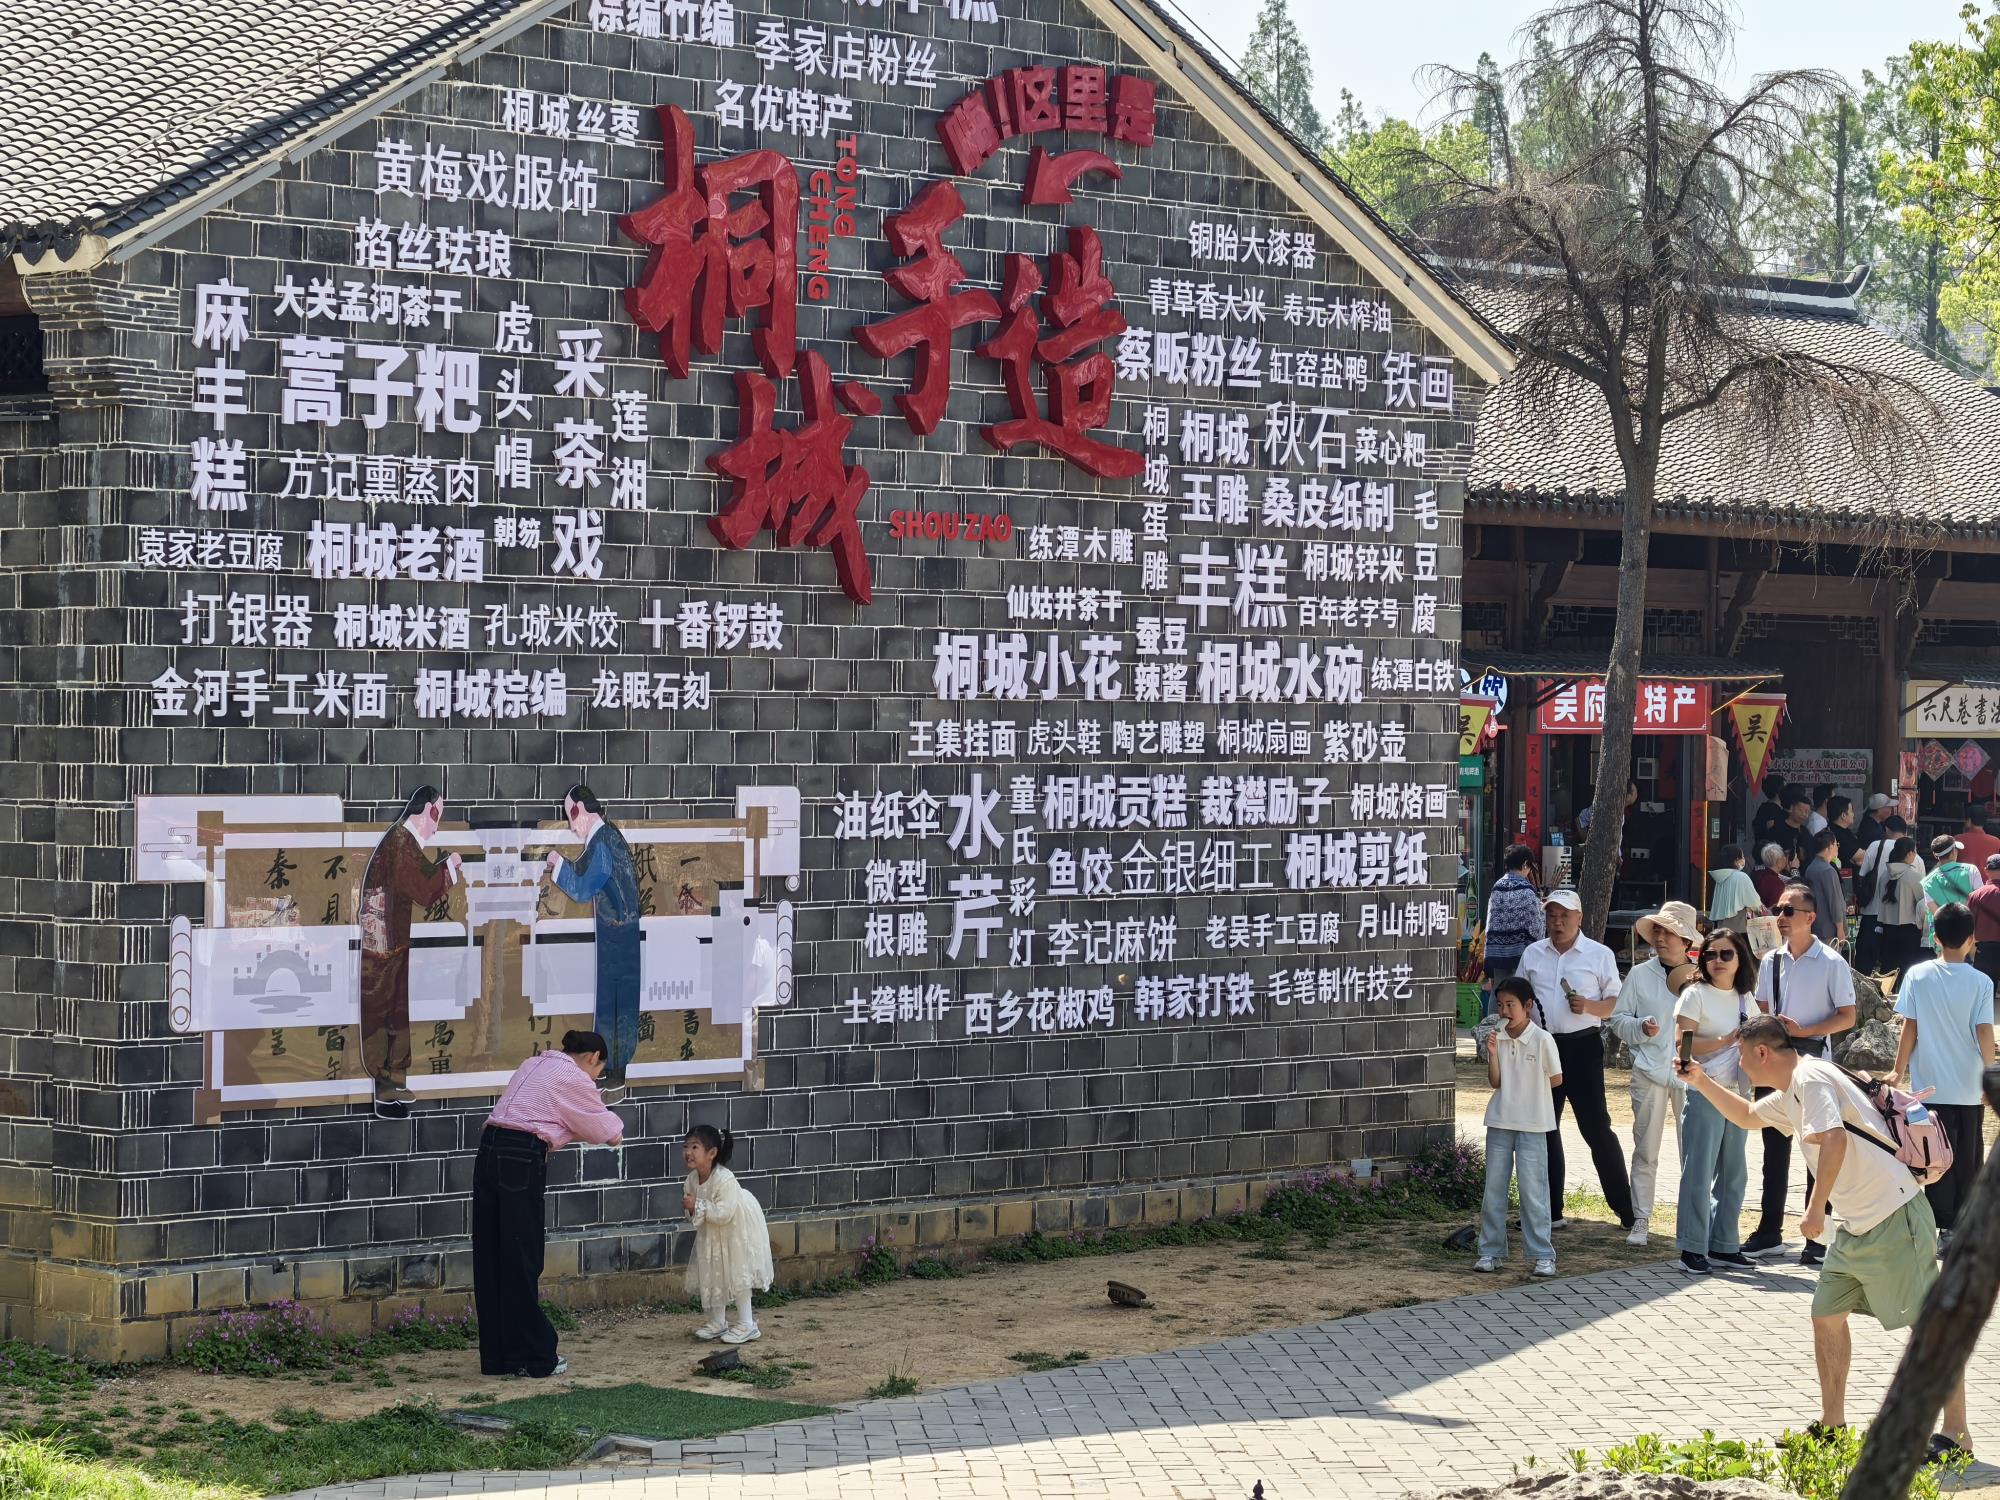 棕编竹编
季家店粉丝
名优特产
桐城丝枣
嗨!这里是
黄梅戏服饰
桐城
TONG CHENG
手造
SHOU ZAO
掐丝珐琅
铜胎大漆器
麻丰糕
大关孟河茶干
虎头帽
采茶戏
莲湘
青草香大米
寿元木榨油
蒿子粑
蔡畈粉丝
缸窑盐鸭
铁画
方记熏蒸肉
朝笏
桐城蛋雕
桐城
秋石
菜心粑
玉雕
桑皮纸制
毛豆腐
袁家老豆腐
桐城老酒
练潭木雕
丰糕
桐城锌米
打银器
桐城米酒
孔城米饺
十番锣鼓
仙姑井茶干
百年老字号
金河手工米面
桐城棕编
龙眠石刻
桐城小花
蚕豆辣酱
桐城水碗
练潭白铁
王集挂面
虎头鞋
陶艺雕塑
桐城扇画
紫砂壶
油纸伞
水芹
童氏彩灯
桐城贡糕
裁襟励子
桐城烙画
微型根雕
鱼饺
金银细工
桐城剪纸
李记麻饼
老吴手工豆腐
月山制陶
土砻制作
西乡花椒鸡
韩家打铁
毛笔制作技艺
禮讓
吴府
特产
吴
吴
六尺巷書法